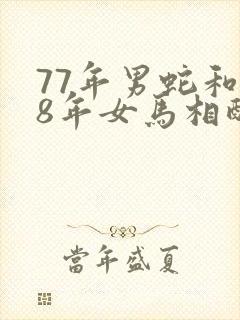 77年男蛇和
8年女馬相
當年盛夏